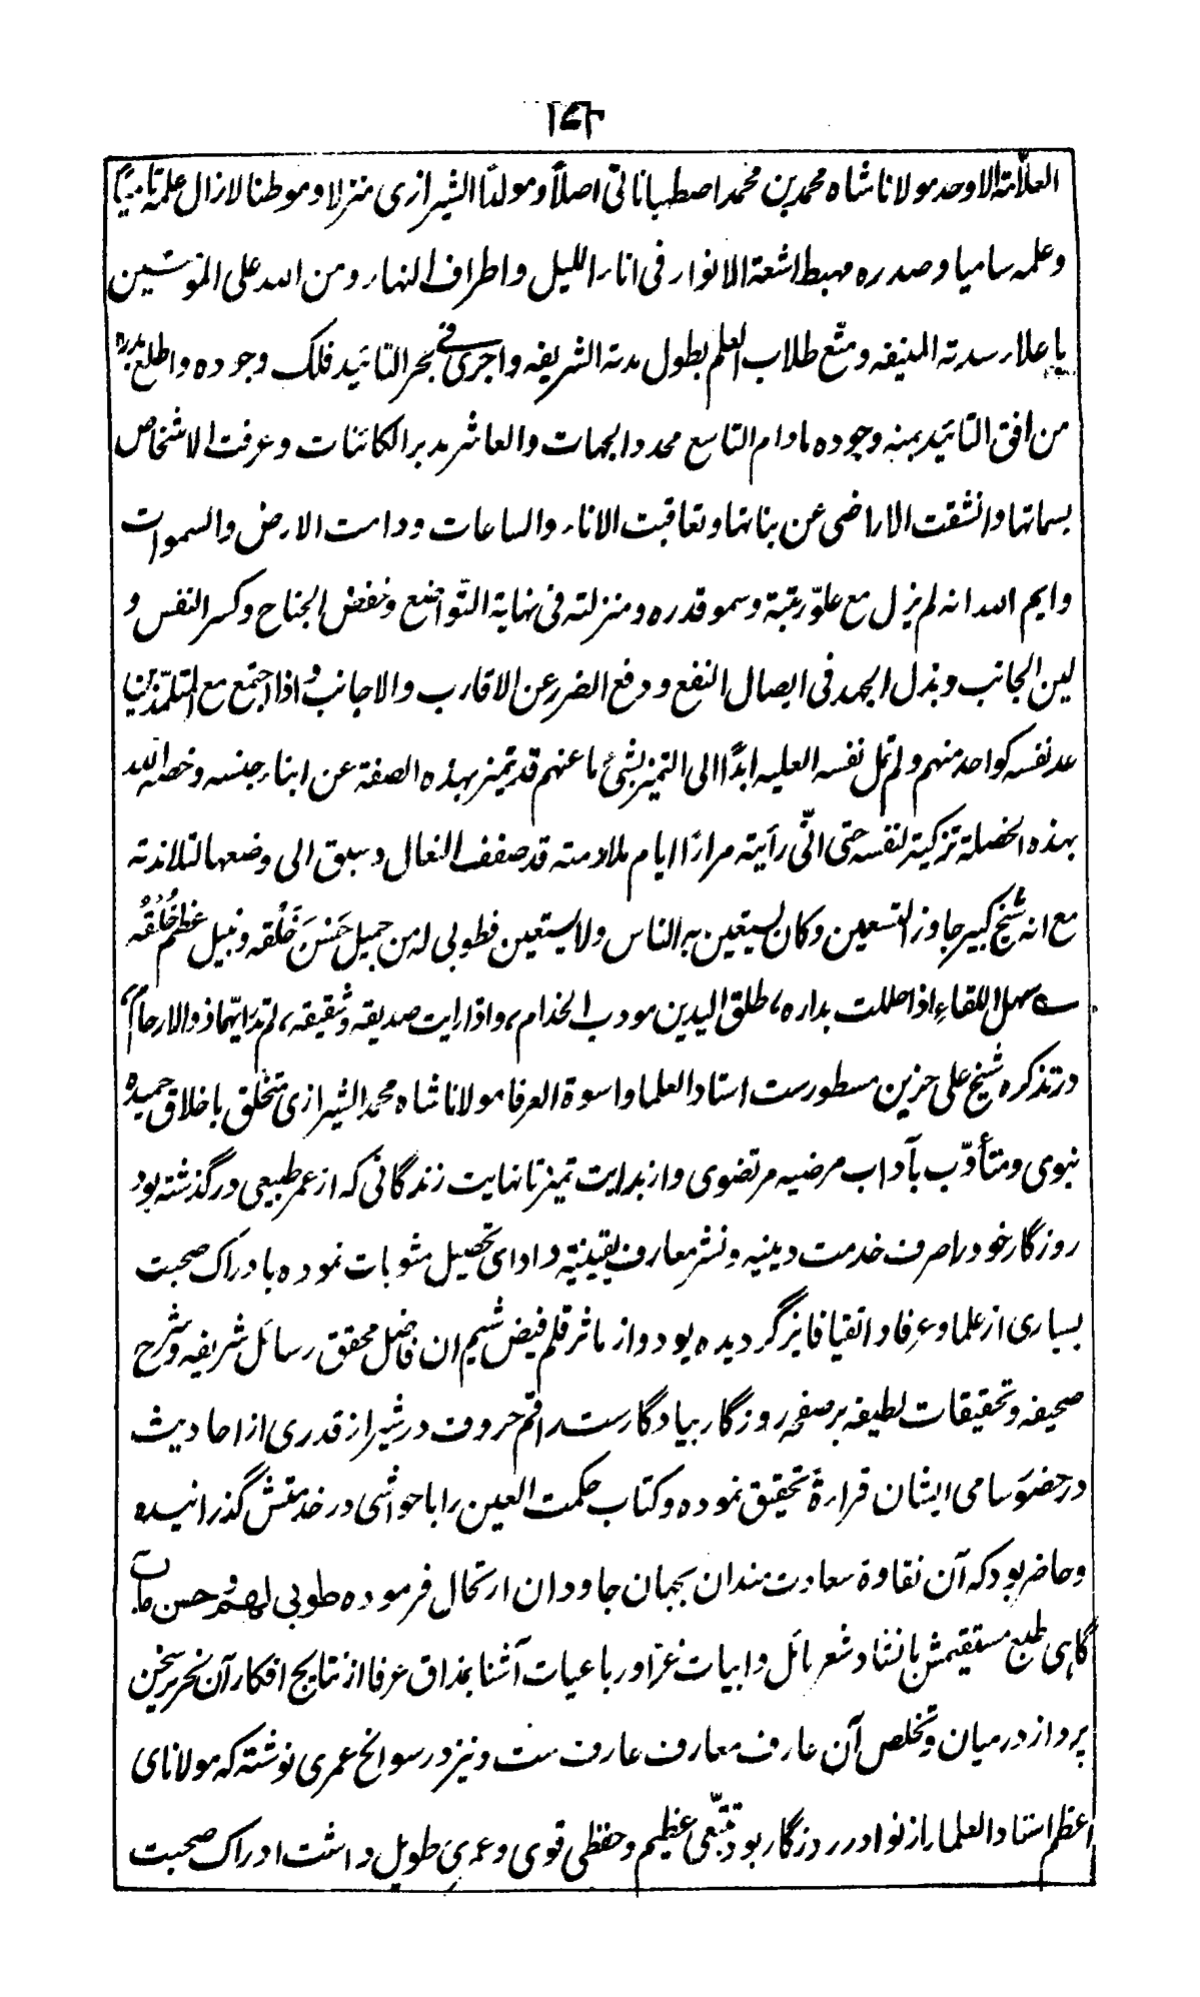 ۱۷۳
العلّامة الاوحد مولانا شاه محمد بن محمد اصطهباناتی اصلاً و مولداً الشیرازی منزلا و موطنا لازال علمه نامیا
وعلمه سامیا و صدره مهبط اشعة الانوار فی اناء اللیل و اطراف النهار و من الله علی المونسین
باعلاء سدته المنیفه و متّع طلاب العلم بطول مدته الشریفه و اجری فی بحر التائید فلک وجوده و اطلع بدره
من افق التائید بمنه وجوده مادام التاسع محدد الجهات والعاشر مدبر الکائنات وعرفت الاشخاص
بسماتها وانشقت الاراضی عن بناتها وتعاقبت الاناء والساعات ودامت الارض والسموات
وایم الله انه لم یزل مع علوّ رتبة وسمو قدره و منزلته فی نهایة التّواضع وخفض الجناح وکسر النفس و
لین الجانب وبذل الجهد فی ایصال النفع و دفع الضرر عن الاقارب والاجانب واذا اجتمع مع المتلمّذین
عد نفسه کواحد منهم ولم تمل نفسه العلیه ابداً الی التمیز بشئ ما عنهم قد تمیز بهذه الصفة عن ابناء جنسه وخصه الله
بهذه الخصلة تزکیة لنفسه حتی انّی رأیته مراراً ایام ملازمته قد صفف النعال و سبق الی وضعها لتلامذته
مع انه شیخ کبیر جاوز التسعین وکان یستعین به الناس ولا یستعین فطوبی له من جمیل حَسَنَ خَلْقه ونبیل عظم خُلُقُه
ے سهل اللقاءِ اذا حللت بداره، طلق الیدین مودب الخدام، واذا رایت صدیقه وشقیقه، لم تدر ایّهما ذو الارحام
در تذکره شیخ علی حزین مسطورست استاد العلما و اسوة العرفا مولانا شاه محمد الشیرازی متخلق باخلاق حمیده
نبوی و متأدّب بآداب مرضیه مرتضوی و از بدایت تمیز تا نهایت زندگانی که از عمر طبیعی در گذشته بود
روزگار خود را صرف خدمت دینیه و نشر معارف یقینیّه و ادای تحصیل مثوبات نموده بادراک صحبت
بسیاری از علما و عرفا و اتقیا فایز گردیده بود و از ماثر قلم فیض شیم ان فاضل محقق رسائل شریفه و شرح
صحیفه و تحقیقات لطیفه بر صفحه روزگار بیادگارست راقم حروف در شیراز قدری از احادیث
در حضور سامی ایشان قراءةً تحقیق نموده و کتاب حکمت العین را با حواشی در خدمتش گذرانیده
و حاضر بود که آن نقاوة سعادت مندان بجهان جاودان ارتحال فرموده طوبی لهم و حسن مآب
گاهی طبع مستقیمش بانشاد شعر مائل و ابیات غرّا و رباعیات آشنا بمذاق عرفا از نتایج افکار آن نحریر سخن
پرداز درمیان و تخلص آن عارف معارف عارف ست و نیز در سوانح عمری نوشته که مولانای
اعظم استاد العلما را از نوادر روزگار بود تتبّعی عظیم و حفظی قوی و عمری طویل داشت ادراک صحبت